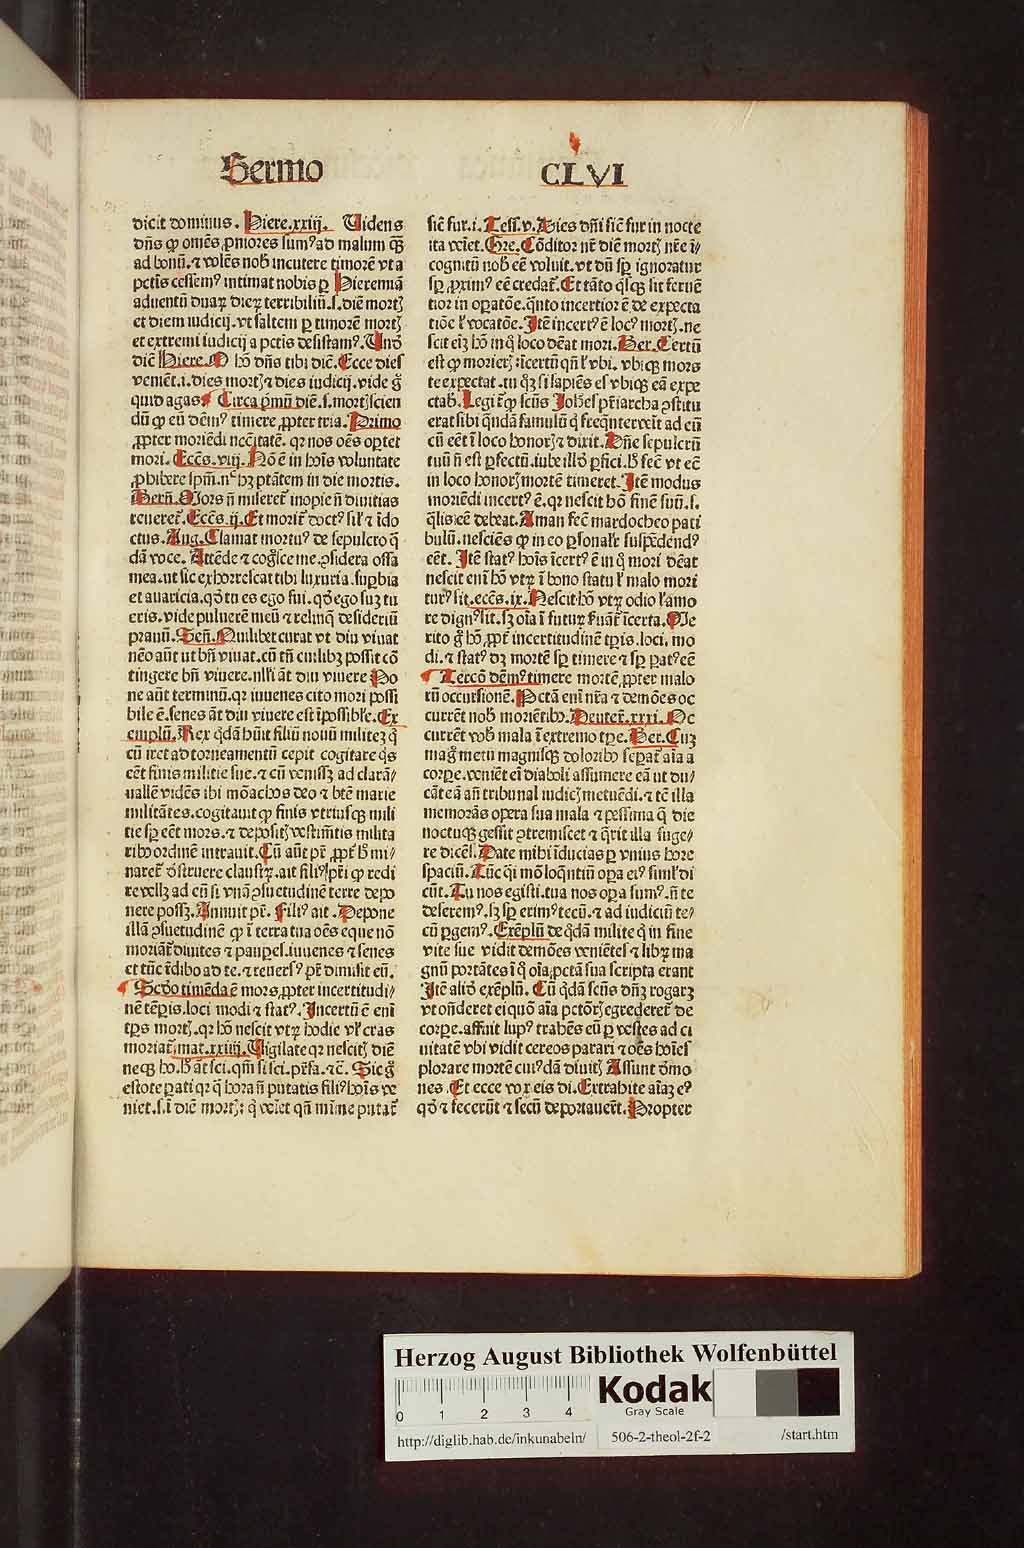 Sermo
CLVI
dicit dominus. Hiere.xxiij. Uidens
dn̄s ꝙ om̄es ꝓniores sumꝰ ad malum qͣꝫ
ad bonū. ⁊ volēs nob̄ incutere timorē vt a
pctīs cessemꝰ intimat nobis ꝑ Hieremiā
aduentū duaꝝ dieꝝ terribiliū.s.diē mortꝭ
et diem iudicij.vt saltem ꝑ timorē mortꝭ
et extremi iudicij a pctīs desistamꝰ. Unō
diē Hiere. hō dn̄s tibi diē. Ecce dies
veniēt.i.dies mortꝭ ⁊ dies iudicij.vide g̊
quid agas Circa pͥmū diē.s.mortꝭ scien
dū ꝙ eū dēmꝰ timere ꝓpter tria. Primo
ꝓpter moriēdi ncc̄itatē. qꝛ nos oēs oꝑtet
mori. Ecc̄s.viij. Nō ē in hoīs voluntate
ꝓhibere spm̄.nͨ hꝫ ptātem in die mortis.
Bern̄. Mors n̄ miseret̄ inopie n̄ diuitias
reueret̄. Ecc̄s.ij. Et morit̄ doctꝰ sil̄r ⁊ īdo
ctus. Aug. Clamat mortuꝰ de sepulcro q̄
dā voce. Attēde ⁊ cog̊sce me.ꝯsidera ossa
mea.ut sic exhorrescat tibi luxuria. suꝑbia
et auaricia. qd̄ tu es ego fui. qd̄ ego suꝫ tu
eris. vide puluerē meū ⁊ relinq̄ desideriū
prauū. Sen̄. Quilibet curat vt diu viuat
nēo aūt ut bn̄ viuat. cū tn̄ cuilibꝫ possit cō
tingere bn̄ viuere. nll̄i āt diu viuere Po
ne aūt terminū. qꝛ iuuenes cito mori possi
bile ē. senes āt diu viuere est īpossibl̄e. Ex
emplū. Rex qͥdā hūit filiū nouū militeꝫ q̄
cū iret ad torneamentū cepit cogitare qͥs
eēt finis militie sue. ⁊ cū venissꝫ ad clarā/
uallē vidēs ibi mōachos deo ⁊ btē marie
militātes. cogitauit ꝙ finis vtriusqꝫ mili
tie sꝑ eēt mors. ⁊ depositꝭ vestimētis milita
ribꝯ ordinē intrauit. Cū aūt pr̄ ꝓpt̄ h̄ mi/
naret̄ ꝺstruere claustꝝ. ait filiꝰ pr̄i ꝙ redi
re vellꝫ ad eū si vnā ꝯsuetudinē terre depo
nere possꝫ. Annuit pr̄. Filiꝰ ait. Depone
illā ꝯsuetudinē ꝙ ī terra tua oēs eque nō
moriāt̄ diuites ⁊ pauꝑes. iuuenes ⁊ senes
et tūc īdibo ad te. ⁊ reuersꝰ pr̄ dimisit eū.
Scd̄o timēda ē mors ꝓpter incertitudi/
nē tēꝑis. loci modi ⁊ statꝰ. Incertū ē eni
tꝑs mortꝭ. qꝛ hō nescit vtꝝ hodie vl̄ cras
moriat̄. mat.xxiiij. Uigilate qꝛ nescitꝭ diē
neqꝫ ho. h̄ āt sci. qm̄ si sci. pr̄fa. ⁊c̄. Sic g̊
estote ꝑati qꝛ q̄ hora n̄ putatis filiꝰ hoīs ve
niet.s.ī diē mortꝭ: q̄ veīet qn̄ mīme putat̄
sic̄ fur.i. Tess̄.v. Dies dn̄i sic̄ fur in nocte
ita veīet. Gre. Cōditor nr̄ diē mortꝭ nr̄e ī/
cognitū nob̄ eē voluit. vt dū sꝑ ignoratur
sꝑ ꝓximꝰ eē credat̄. Et tāto qͥsqꝫ sit feruē
tior in oꝑatōe. qͣnto incertior ē de expecta
tiōe l̄ vocatōe. Itē incertꝰ ē locꝰ mortꝭ. ne
scit eīꝫ hō in q̄ loco dēat mori. Ber. Certū
est ꝙ morierꝭ īcertū qn̄ l̄ vbi. vbiqꝫ mors
te expectat. tu qͣꝫ si sapiēs es vbiqꝫ eā expe
ctab̄. Legit̄ ꝙ scūs Joh̄es pr̄iarcha ꝯstitu
erat sibi quēdā famulū q̄ freqn̄ter veīt ad eū
cū eēt ī loco honorꝭ ⁊ dixit. Dn̄e sepulcrū
tuū n̄ est ꝑfectū. iube illd̄ ꝑfici. h̄ fec̄ vt eē
in loco honorꝭ mortē timeret. Itē modus
moriēdi incertꝰ ē. qꝛ nescit hō finē suū.s.
qͣlis eē debeat. Aman fec̄ mardocheo pati
bulū. nesciēs ꝙ in eo ꝑsonalr̄ suspēdendꝰ
eēt. Itē statꝰ hoīs īcertꝰ ē in q̄ mori dēat
nescit eni hō vtꝝ ī bono statu l̄ malo mori
turꝰ sit. ecc̄s.ix. Nescit hō vtꝝ odio l̄ amo
re dignꝰ sit. sꝫ oīa ī futuꝝ ẜuāt̄ īcerta. Me
rito g̊ hō ꝓpt̄ incertitudinē tꝑis. loci. mo
di. ⁊ statꝰ dꝫ mortē sꝑ timere ⁊ sꝑ ꝑatꝰ eē
Tercō dēmꝰ timere mortē ꝓpter malo
rū occursionē. Pctā eni nr̄a ⁊ demōes oc
currēt nob̄ moriētibꝯ. Deuter̄.xxxi. Oc
currēt vob̄ mala ī extremo tꝑe. Ber. Cuꝫ
mag̊ metu magnisqꝫ doloribꝯ seꝑat̄ aīa a
corꝑe. veniēt ei diaboli assumere eā ut du/
cāt eā an̄ tribunal iudicꝭ metuēdi. ⁊ tē illa
memorās opera sua mala ⁊ pessima q̄ die
noctuqꝫ gessit ꝯtremiscet ⁊ q̄rit illa fuge/
re dicēs. Date mihi īducias ꝑ vnius hore
spaciū. Tūc qͥi mō loq̄ntiū oꝑa eiꝰ siml̄ di
cūt. Tu nos egisti. tua nos oꝑa sumꝰ. n̄ te
deseremꝰ. sꝫ sꝑ erimꝰ tecū. ⁊ ad iudiciū te/
cū ꝑgemꝰ. Exēplū de qͦdā milite q̄ in fine
vite sue vidit demōes veniētes ⁊ libꝝ ma
gnū portātes ī q̄ oīa pctā sua scripta erant
Itē aliꝺ exēplū. Cū qͥdā scūs dn̄ꝫ rogarꝫ
vt on̄deret ei quō aīa pctōrꝭ egrederet̄ de
corꝑe. affuit lupꝰ trahēs eū ꝑ vestes ad ci
uitatē vbi vidit cereos parari ⁊ oēs hoīes
plorare mortē cuiꝰdā diuitꝭ Assunt dēmo
nes. Et ecce vox eis di. Extrahite aīaꝫ eꝰ
qd̄ ⁊ fecerūt ⁊ secū deportauerūt. Propter
Herzog August Bibliothek Wolfenbüttel
0 1 2 3 4
Kodak
Gray Scale
http://diglib.hab.de/inkunabeln/ 506-2-theol-2f-2 /start.htm